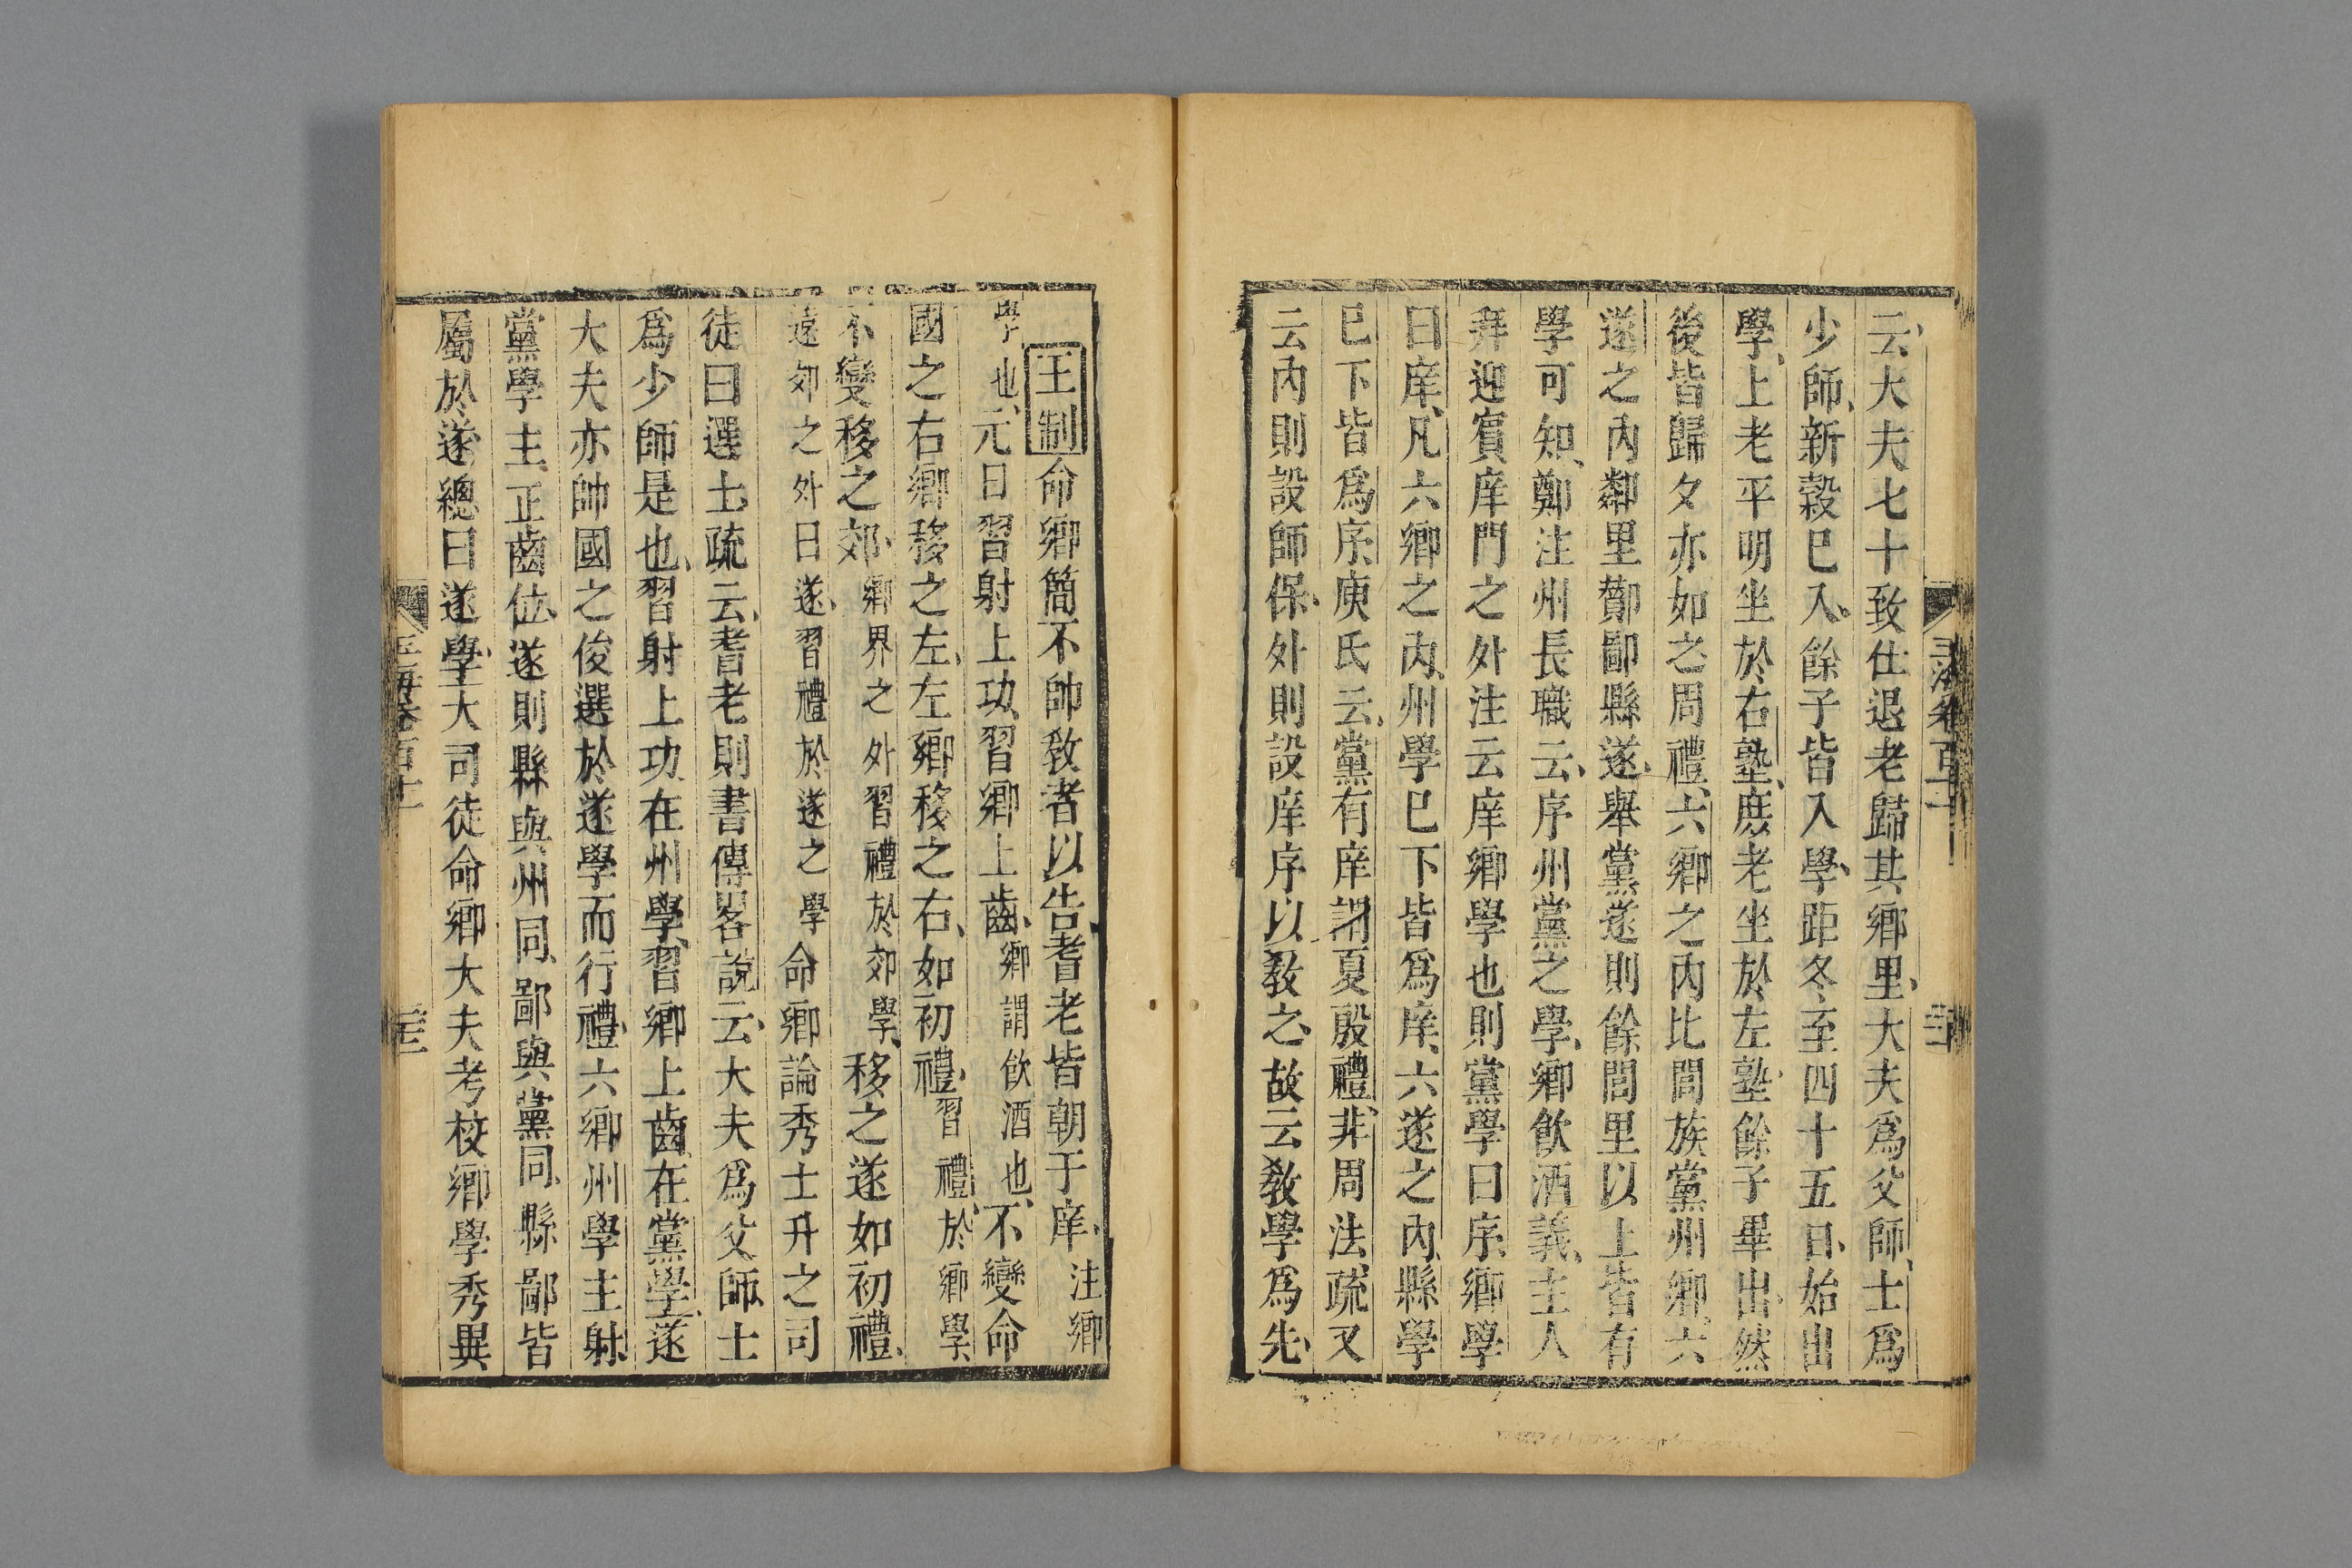 云大夫七十致仕退老歸其鄉里大夫爲父師士爲
少師新穀已入餘子皆入學距冬至四十五日始出
學上老平明坐於右塾庶老坐於左塾餘子畢出然
後皆歸夕亦如之周禮六鄉之內比閭族黨州鄉六
遂之內鄰里酇鄙縣遂舉黨遂則餘閭里以上皆有
學可知鄭注州長職云序州黨之學鄉飲酒義主人
拜迎賓庠門之外注云庠鄉學也則黨學曰序鄉學
曰庠凡六鄉之內州學已下皆爲庠六遂之內縣學
已下皆爲序庾氏云黨有庠謂夏殷禮非周法疏又
云內則設師保外則設庠序以敎之故云敎學爲先
王制命鄉簡不帥敎者以告耆老皆朝于庠注鄉
學也元日習射上功習鄉上齒鄉謂飲酒也不變命
國之右鄉移之左左鄉移之右如初禮習禮於鄉學
不變移之郊鄉界之外習禮於郊學移之遂如初禮
遠郊之外曰遂習禮於遂之學命鄉論秀士升之司
徒曰選士疏云耆老則書傳畧說云大夫爲父師士
爲少師是也習射上功在州學習鄉上齒在黨學遂
大夫亦帥國之俊選於遂學而行禮六鄉州學主射
黨學主正齒位遂則縣與州同鄙與黨同縣鄙皆
屬於遂總曰遂學大司徒命鄉大夫考校鄉學秀異